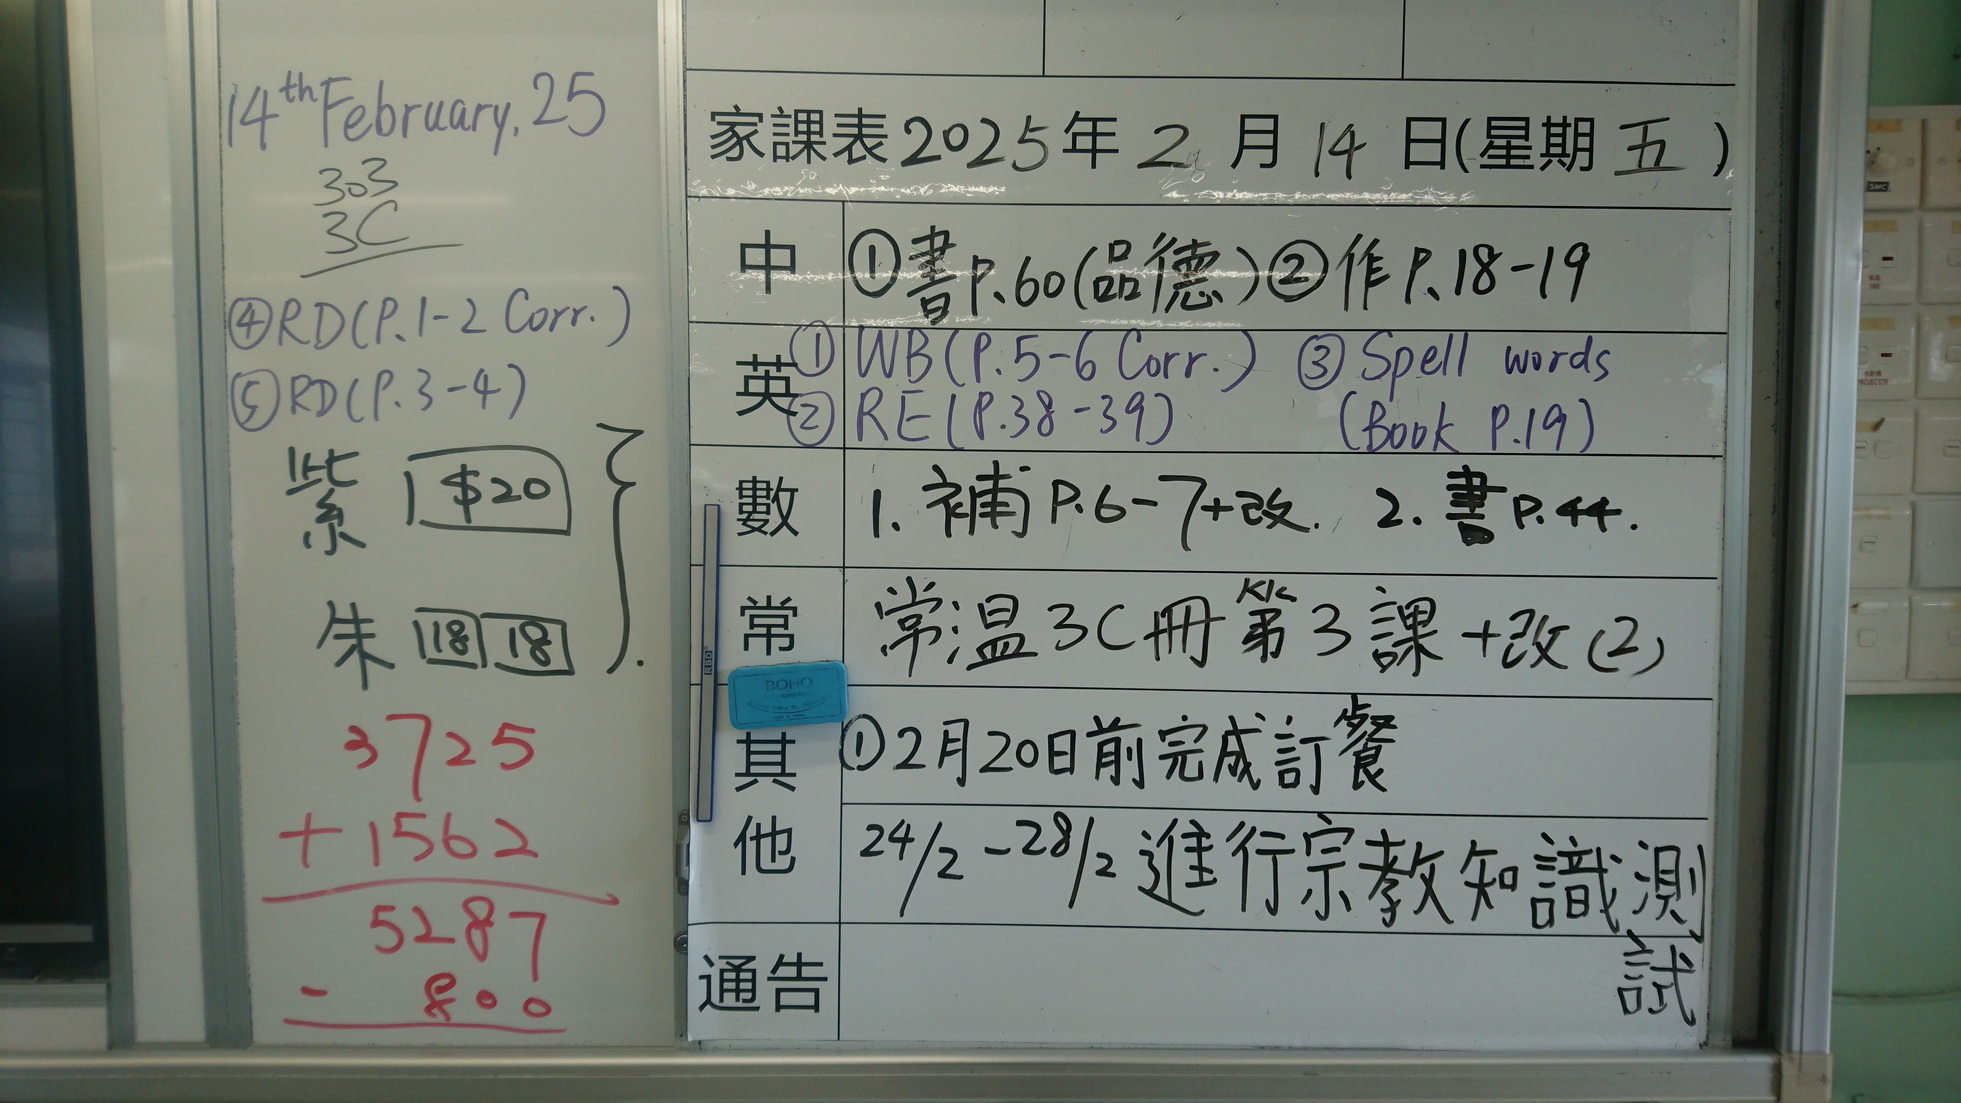 14th February, 25
303
3C
④RD(P.1-2 Corr.)
⑤RD(P.3-4)
紫 $20
朱 18 18
3725
+1562
5287
- 800
家課表2025年2月14日(星期五)
中 ①書P.60(品德)②作P.18-19
英 ①WB(P.5-6 Corr.) ③Spell words
②RE(P.38-39) (Book P.19)
數 1. 補P.6-7+改. 2. 書P.44.
常 常温3C冊第3課+改(2)
BOHO
其他 ①2月20日前完成訂餐
24/2-28/2進行宗教知識測
試
通告